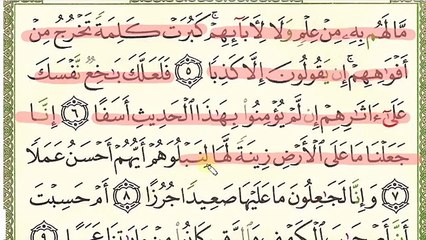 مَّا لَهُم بِهِۦ مِنْ عِلْمٍ وَلَا لِأٓبَآئِهِمْ ۚ كَبُرَتْ كَلِمَةً تَخْرُجُ مِنْ
أَفْوَٰهِهِمْ ۚ إِن يَقُولُونَ إِلَّا كَذِبًا ۝٥ فَلَعَلَّكَ بَٰخِعٌ نَّفْسَكَ
عَلَىٰٓ ءَاثَٰرِهِمْ إِن لَّمْ يُؤْمِنُوا۟ بِهَٰذَا ٱلْحَدِيثِ أَسَفًا ۝٦ إِنَّا
جَعَلْنَا مَا عَلَى ٱلْأَرْضِ زِينَةً لَّهَا لِنَبْلُوَهُمْ أَيُّهُمْ أَحْسَنُ عَمَلًا
۝٧ وَإِنَّا لَجَٰعِلُونَ مَا عَلَيْهَا صَعِيدًا جُرُزًا ۝٨ أَمْ حَسِبْتَ
أَنَّ أَصْحَٰبَ ٱلْكَهْفِ وَٱلرَّقِيمِ كَانُوا۟ مِنْ ءَايَٰتِنَا عَجَبًا ۝٩